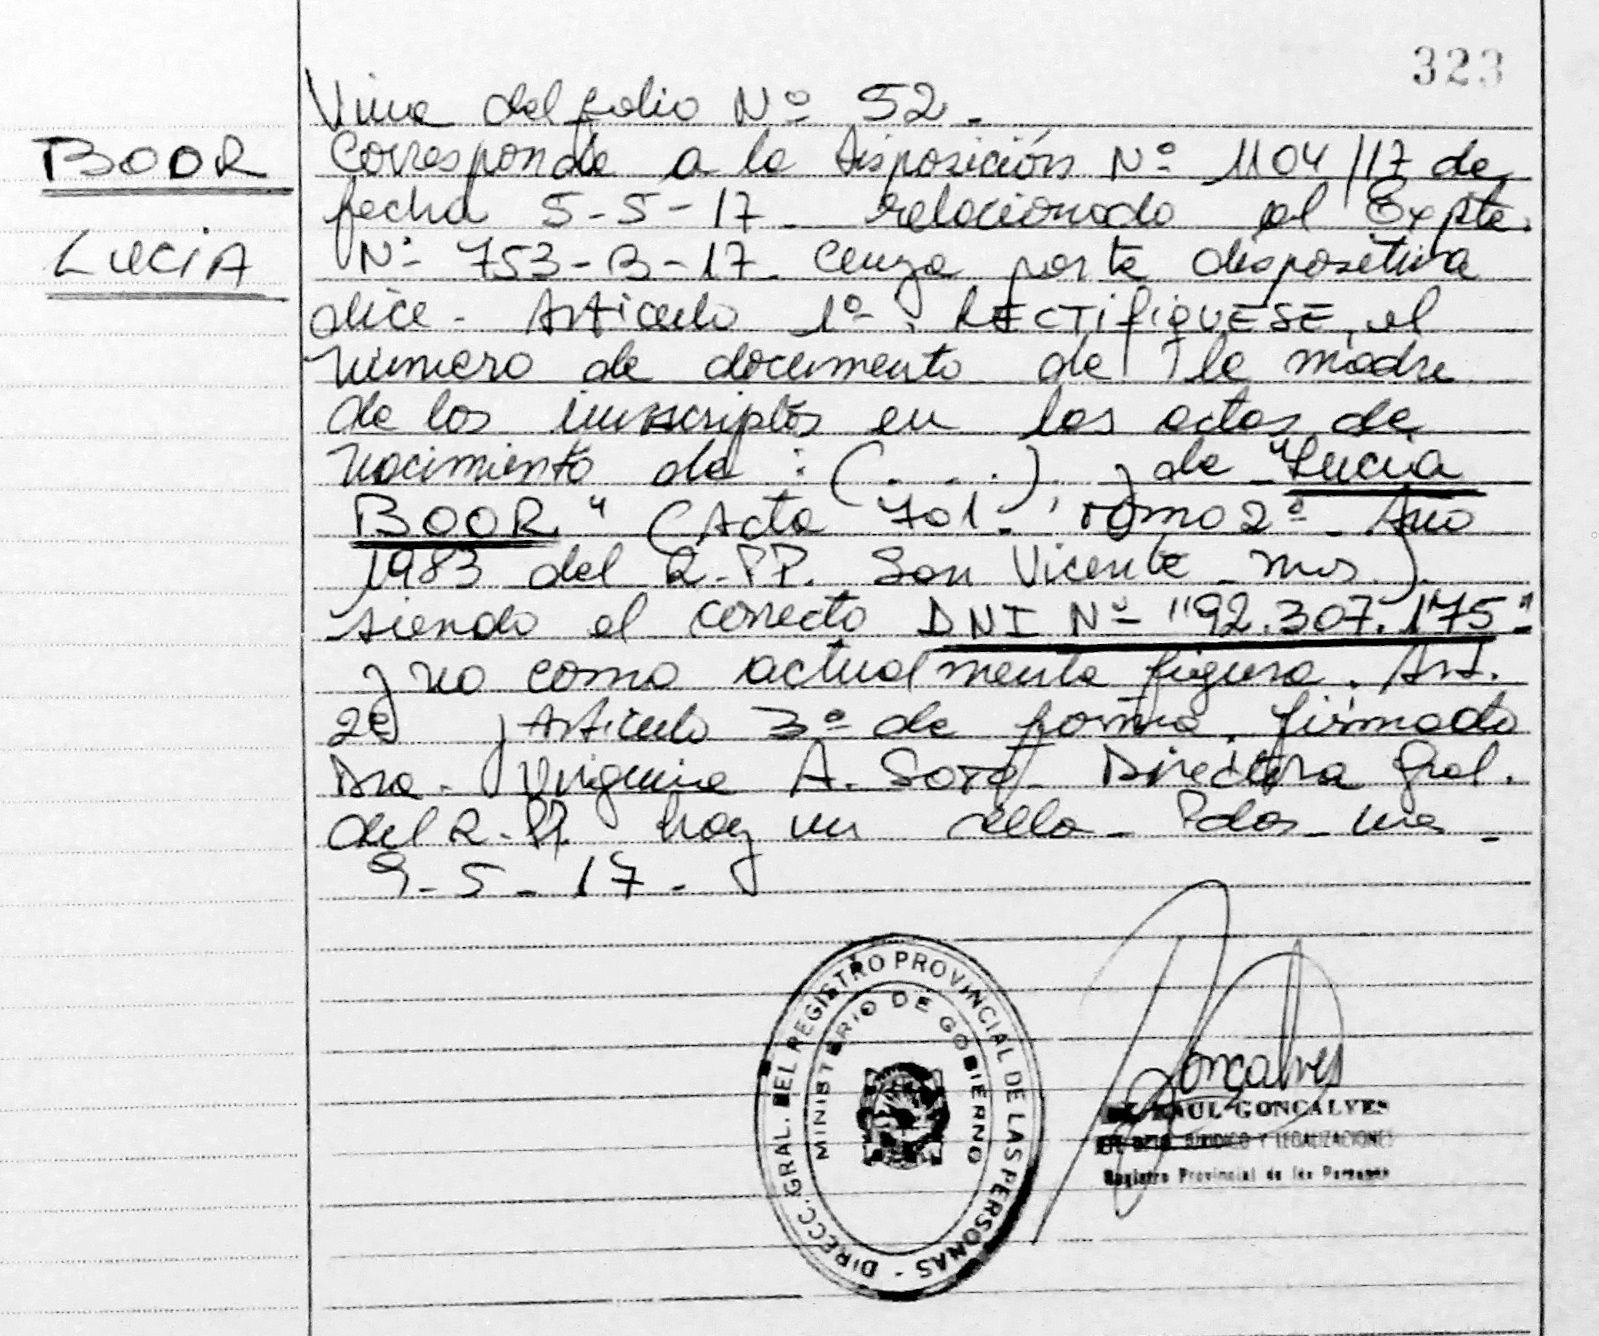 323
BOOR
LUCIA
Viene del folio Nº 52.
Corresponde a la disposición Nº 1104/17 de
fecha 5-5-17 relacionado al Expte.
Nº 753-B-17. Cuya parte dispositiva
dice. Artículo 1º: RECTIFIQUESE, el
número de documento de la madre
de los inscriptos en las actas de
nacimiento de: (. . . .) y de "Lucia
BOOR" (Acta 701. Tomo 2º. Año
1983 del R.PP. San Vicente Mns.)
siendo el correcto DNI Nº "92.307.175"
y no como actualmente figura. Art.
2º y Artículo 3º de forma. firmado
Dra. Virginia A. Soto. Directora Gral.
del R.PP. hay un sello. Pdas. Mnes.
9-5-17.
DIRECC. GRAL. DEL REGISTRO PROVINCIAL DE LAS PERSONAS -
MINISTERIO DE GOBIERNO
Goncalves
RAUL GONCALVES
JURIDICO Y LEGALIZACIONES
Registro Provincial de las Personas